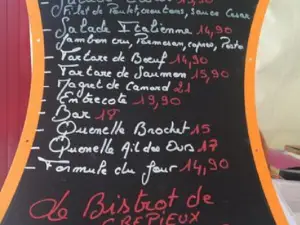 Filet de Poulet, croutons, sauce Cesar
Salade Italienne 14,90
Jambon cru, Parmesan, capres, Pesto
Tartare de Boeuf 14,90
Tartare de Saumon 15,90
Magret de Canard 21
Entrecote 19,90
Bar 18
Quenelle Brochet 15
Quenelle Ail des Ours 17
Formule du Jour 14,90
Le Bistrot de
CREPIEUX